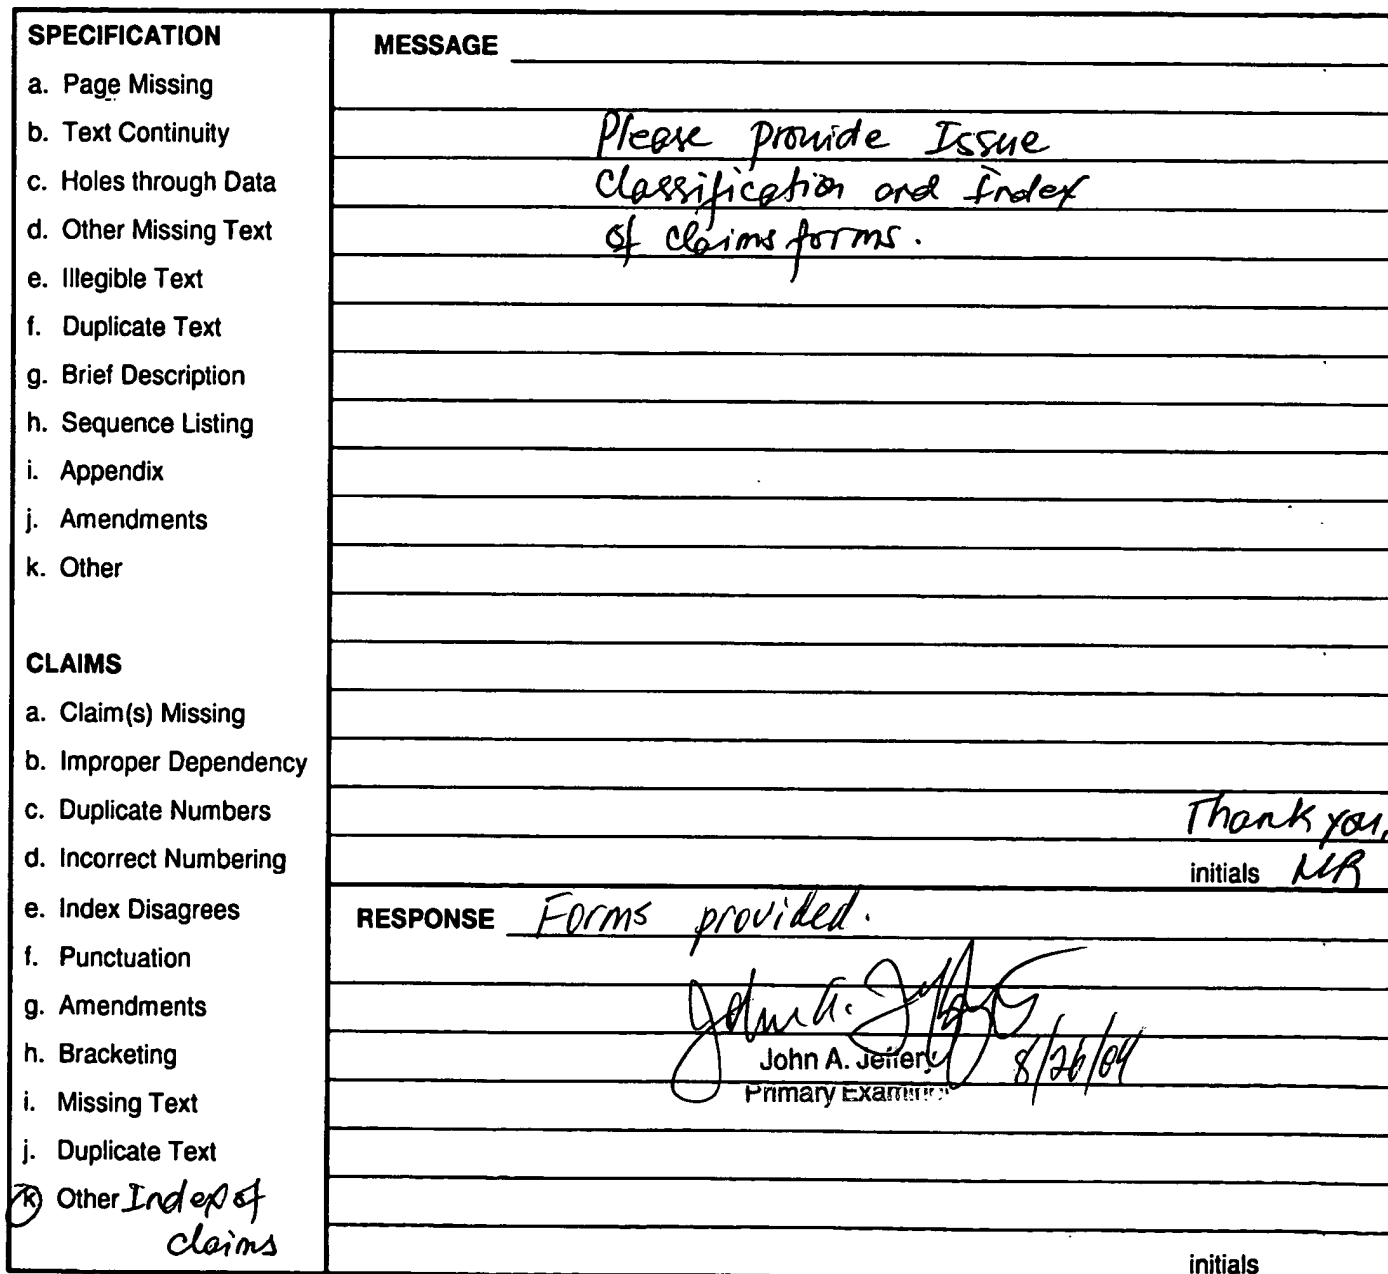 SPECIFICATION
a. Page Missing
b. Text Continuity
c. Holes through Data
d. Other Missing Text
e. Illegible Text
f. Duplicate Text
g. Brief Description
h. Sequence Listing
i. Appendix
j. Amendments
k. Other
CLAIMS
a. Claim(s) Missing
b. Improper Dependency
c. Duplicate Numbers
d. Incorrect Numbering
e. Index Disagrees
f. Punctuation
g. Amendments
h. Bracketing
i. Missing Text
j. Duplicate Text
k Other Index of
claims
MESSAGE
Please provide Issue
Classification and Index
of claims forms.
Thank you,
initials MR
RESPONSE Forms provided.
John A. Jeffery
John A. Jeffery 8/26/04
Primary Examiner
initials